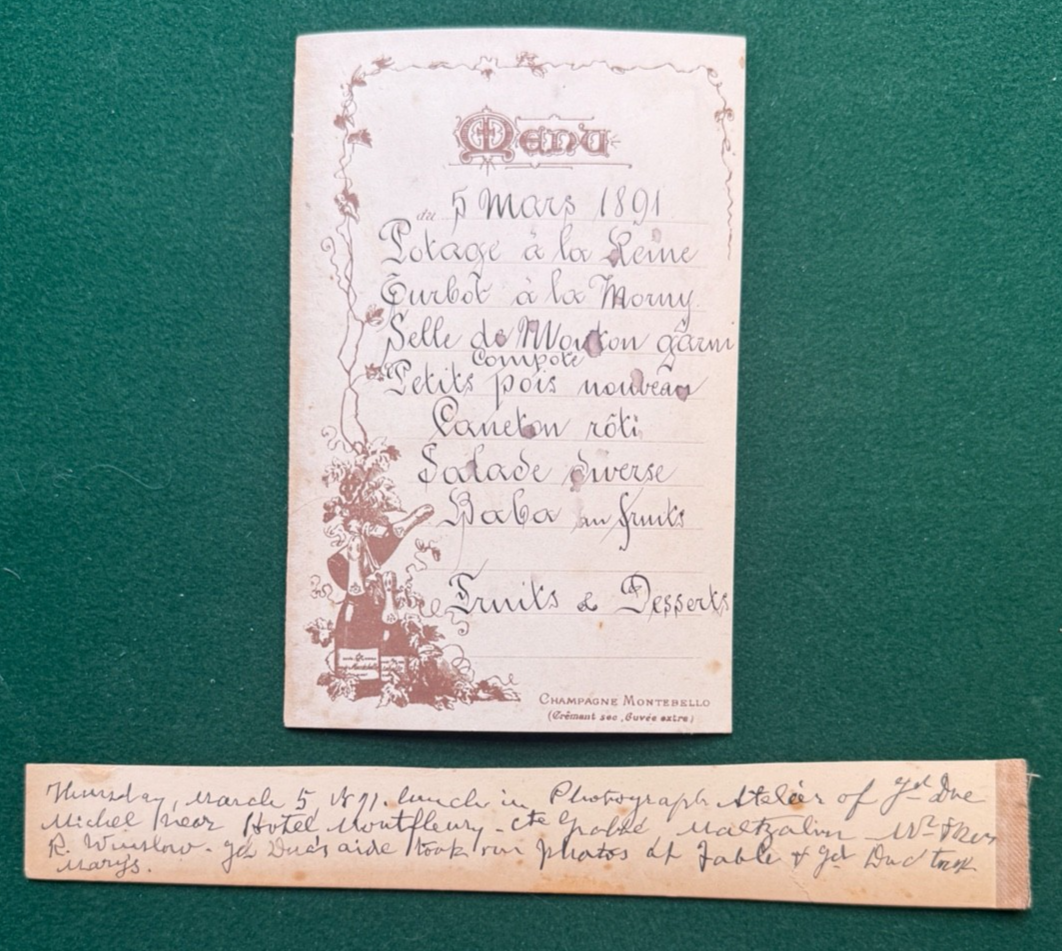 Menu
du 5 Mars 1891
Potage à la Reine
Turbot à la Morny
Selle de Mouton garni
Compote
Petits pois nouveau
Caneton rôti
Salade diverse
Baba au fruits
Fruits & Desserts
CHAMPAGNE MONTEBELLO
(Crémant sec, Cuvée extra)
Thursday, March 5, 1891. lunch in Photograph Atelier of Gd Duc
Michel near Hotel Montfleury - Cte Maltzalin - Mr & Mrs
R. Winslow - Gd Duc's aide took our photos at table & Gd Duc took
Mary's.